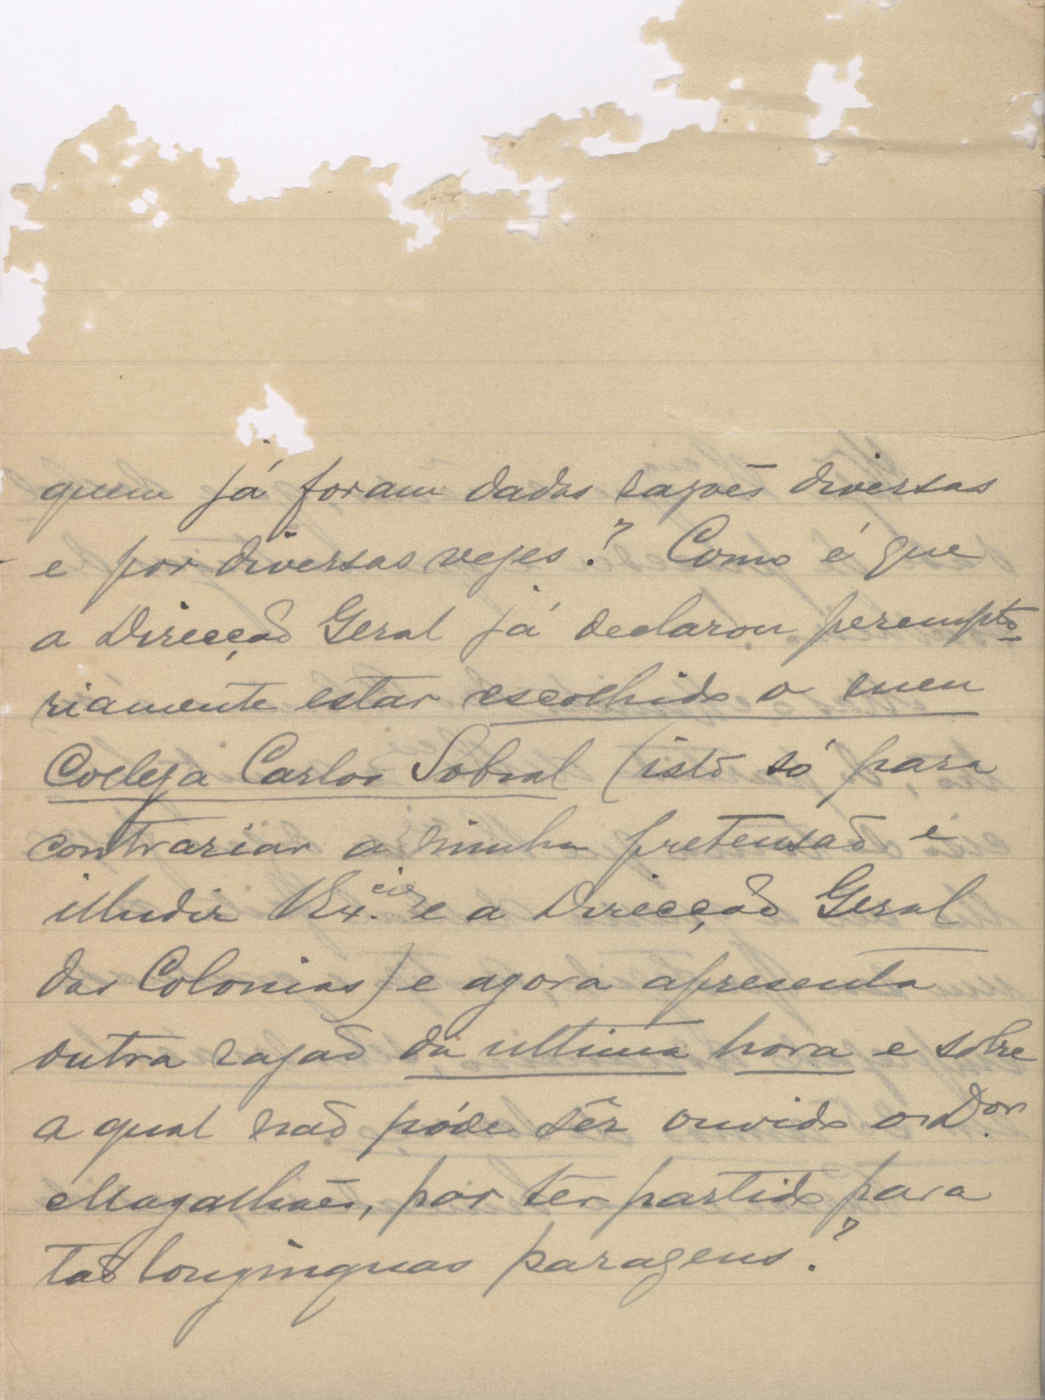 quem já foram dadas razões diversas
e por diversas vezes? Como é que
a Direcção Geral já declarou perempto-
riamente estar escolhido o meu
Collega Carlos Sobral (isto só para
contrariar a minha pretensão e
illudir VEx.cia e a Direcção Geral
das Colonias) e agora apresenta
outra razão da ultima hora e sobre
a qual não póde sêr ouvido o Dor.
Magalhães, por têr partido para
tão longinquas paragens?